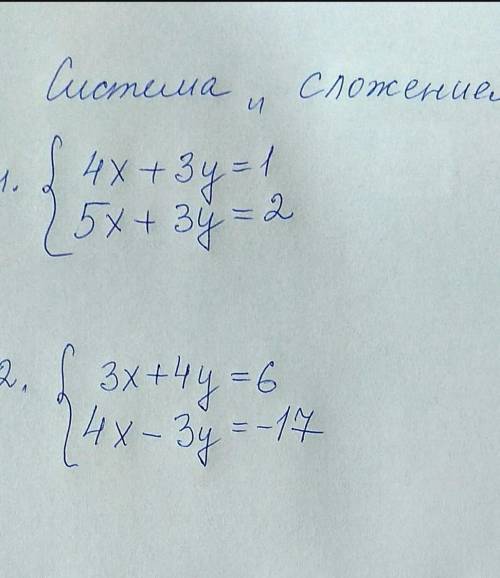 Система и сложение
1. 4x + 3y = 1
5x + 3y = 2
2. 3x + 4y = 6
4x - 3y = -17